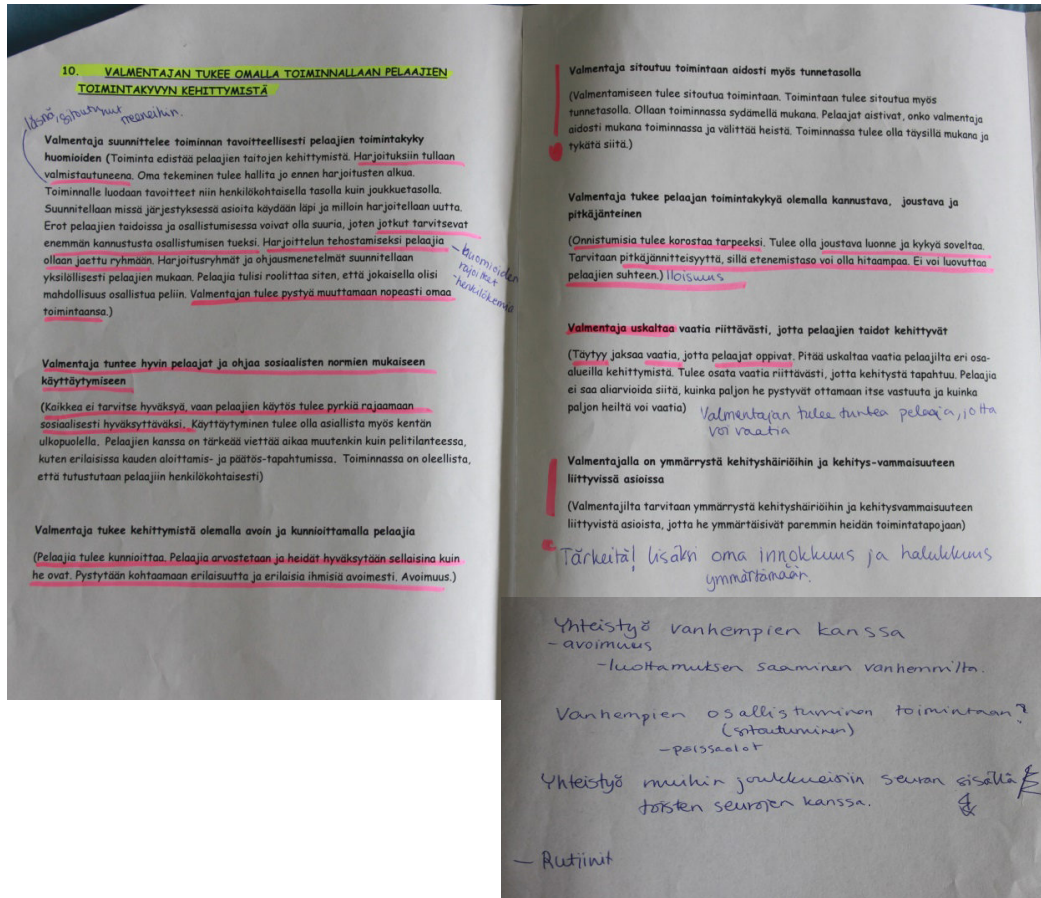 10. VALMENTAJAN TUKEE OMALLA TOIMINNALLAAN PELAAJIEN
TOIMINTAKYVYN KEHITTYMISTÄ
läsnä, sitoutunut
Valmentaja suunnittelee toiminnan tavoitteellisesti pelaajien toimintakyky
huomioiden (Toiminta edistää pelaajien taitojen kehittymistä. Harjoituksiin tullaan
valmistautuneena. Oma tekeminen tulee hallita jo ennen harjoitusten alkua.
Toiminnalle luodaan tavoitteet niin henkilökohtaisella tasolla kuin joukkuetasolla.
Suunnitellaan missä järjestyksessä asioita käydään läpi ja milloin harjoitellaan uutta.
Erot pelaajien taidoissa ja osallistumisessa voivat olla suuria, joten jotkut tarvitsevat
enemmän kannustusta osallistumisen tueksi. Harjoittelun tehostamiseksi pelaajia
ollaan jaettu ryhmään. Harjoitusryhmät ja ohjausmenetelmät suunnitellaan
yksilöllisesti pelaajien mukaan. Pelaajia tulisi roolittaa siten, että jokaisella olisi
mahdollisuus osallistua peliin. Valmentajan tulee pystyä muuttamaan nopeasti omaa
toimintaansa.)
- huomioiden
rajoitteet
- henkilökemia
Valmentaja tuntee hyvin pelaajat ja ohjaa sosiaalisten normien mukaiseen
käyttäytymiseen
(Kaikkea ei tarvitse hyväksyä, vaan pelaajien käytös tulee pyrkiä rajaamaan
sosiaalisesti hyväksyttäväksi. Käyttäytyminen tulee olla asiallista myös kentän
ulkopuolella. Pelaajien kanssa on tärkeää viettää aikaa muutenkin kuin pelitilanteessa,
kuten erilaisissa kauden aloittamis- ja päätös-tapahtumissa. Toiminnassa on oleellista,
että tutustutaan pelaajiin henkilökohtaisesti)
Valmentaja tukee kehittymistä olemalla avoin ja kunnioittamalla pelaajia
(Pelaajia tulee kunnioittaa. Pelaajia arvostetaan ja heidät hyväksytään sellaisina kuin
he ovat. Pystytään kohtaamaan erilaisuutta ja erilaisia ihmisiä avoimesti. Avoimuus.)
Valmentaja sitoutuu toimintaan aidosti myös tunnetasolla
(Valmentamiseen tulee sitoutua toimintaan. Toimintaan tulee sitoutua myös
tunnetasolla. Ollaan toiminnassa sydämellä mukana. Pelaajat aistivat, onko valmentaja
aidosti mukana toiminnassa ja välittää heistä. Toiminnassa tulee olla täysillä mukana ja
tykätä siitä.)
Valmentaja tukee pelaajan toimintakykyä olemalla kannustava, joustava ja
pitkäjänteinen
(Onnistumisia tulee korostaa tarpeeksi. Tulee olla joustava luonne ja kykyä soveltaa.
Tarvitaan pitkäjännitteisyyttä, sillä etenemistaso voi olla hitaampaa. Ei voi luovuttaa
pelaajien suhteen.) Iloisuus
Valmentaja uskaltaa vaatia riittävästi, jotta pelaajien taidot kehittyvät
(Täytyy jaksaa vaatia, jotta pelaajat oppivat. Pitää uskaltaa vaatia pelaajilta eri osa-
alueilla kehittymistä. Tulee osata vaatia riittävästi, jotta kehitystä tapahtuu. Pelaajia
ei saa aliarvioida siitä, kuinka paljon he pystyvät ottamaan itse vastuuta ja kuinka
paljon heiltä voi vaatia) Valmentajan tulee tuntea pelaaja, jotta
voi vaatia
Valmentajalla on ymmärrystä kehityshäiriöihin ja kehitys-vammaisuuteen
liittyvissä asioissa
(Valmentajilta tarvitaan ymmärrystä kehityshäiriöihin ja kehitysvammaisuuteen
liittyvistä asioista, jotta he ymmärtäisivät paremmin heidän toimintatapojaan)
Tärkeitä! Lisäksi oma innokkuus ja halukkuus
ymmärtämään.
Yhteistyö vanhempien kanssa
- avoimuus
- luottamuksen saaminen vanhemmilta.
Vanhempien osallistuminen toimintaan?
(sitoutuminen)
- poissaolot
Yhteistyö muihin joukkueisiin seuran sisällä
toisten seurojen kanssa.
- Rutiinit